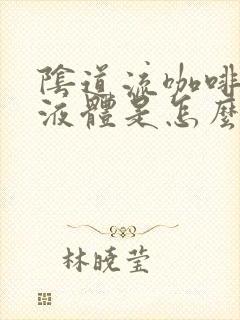 陰道流咖啡
液體是怎麼
林曉瑩